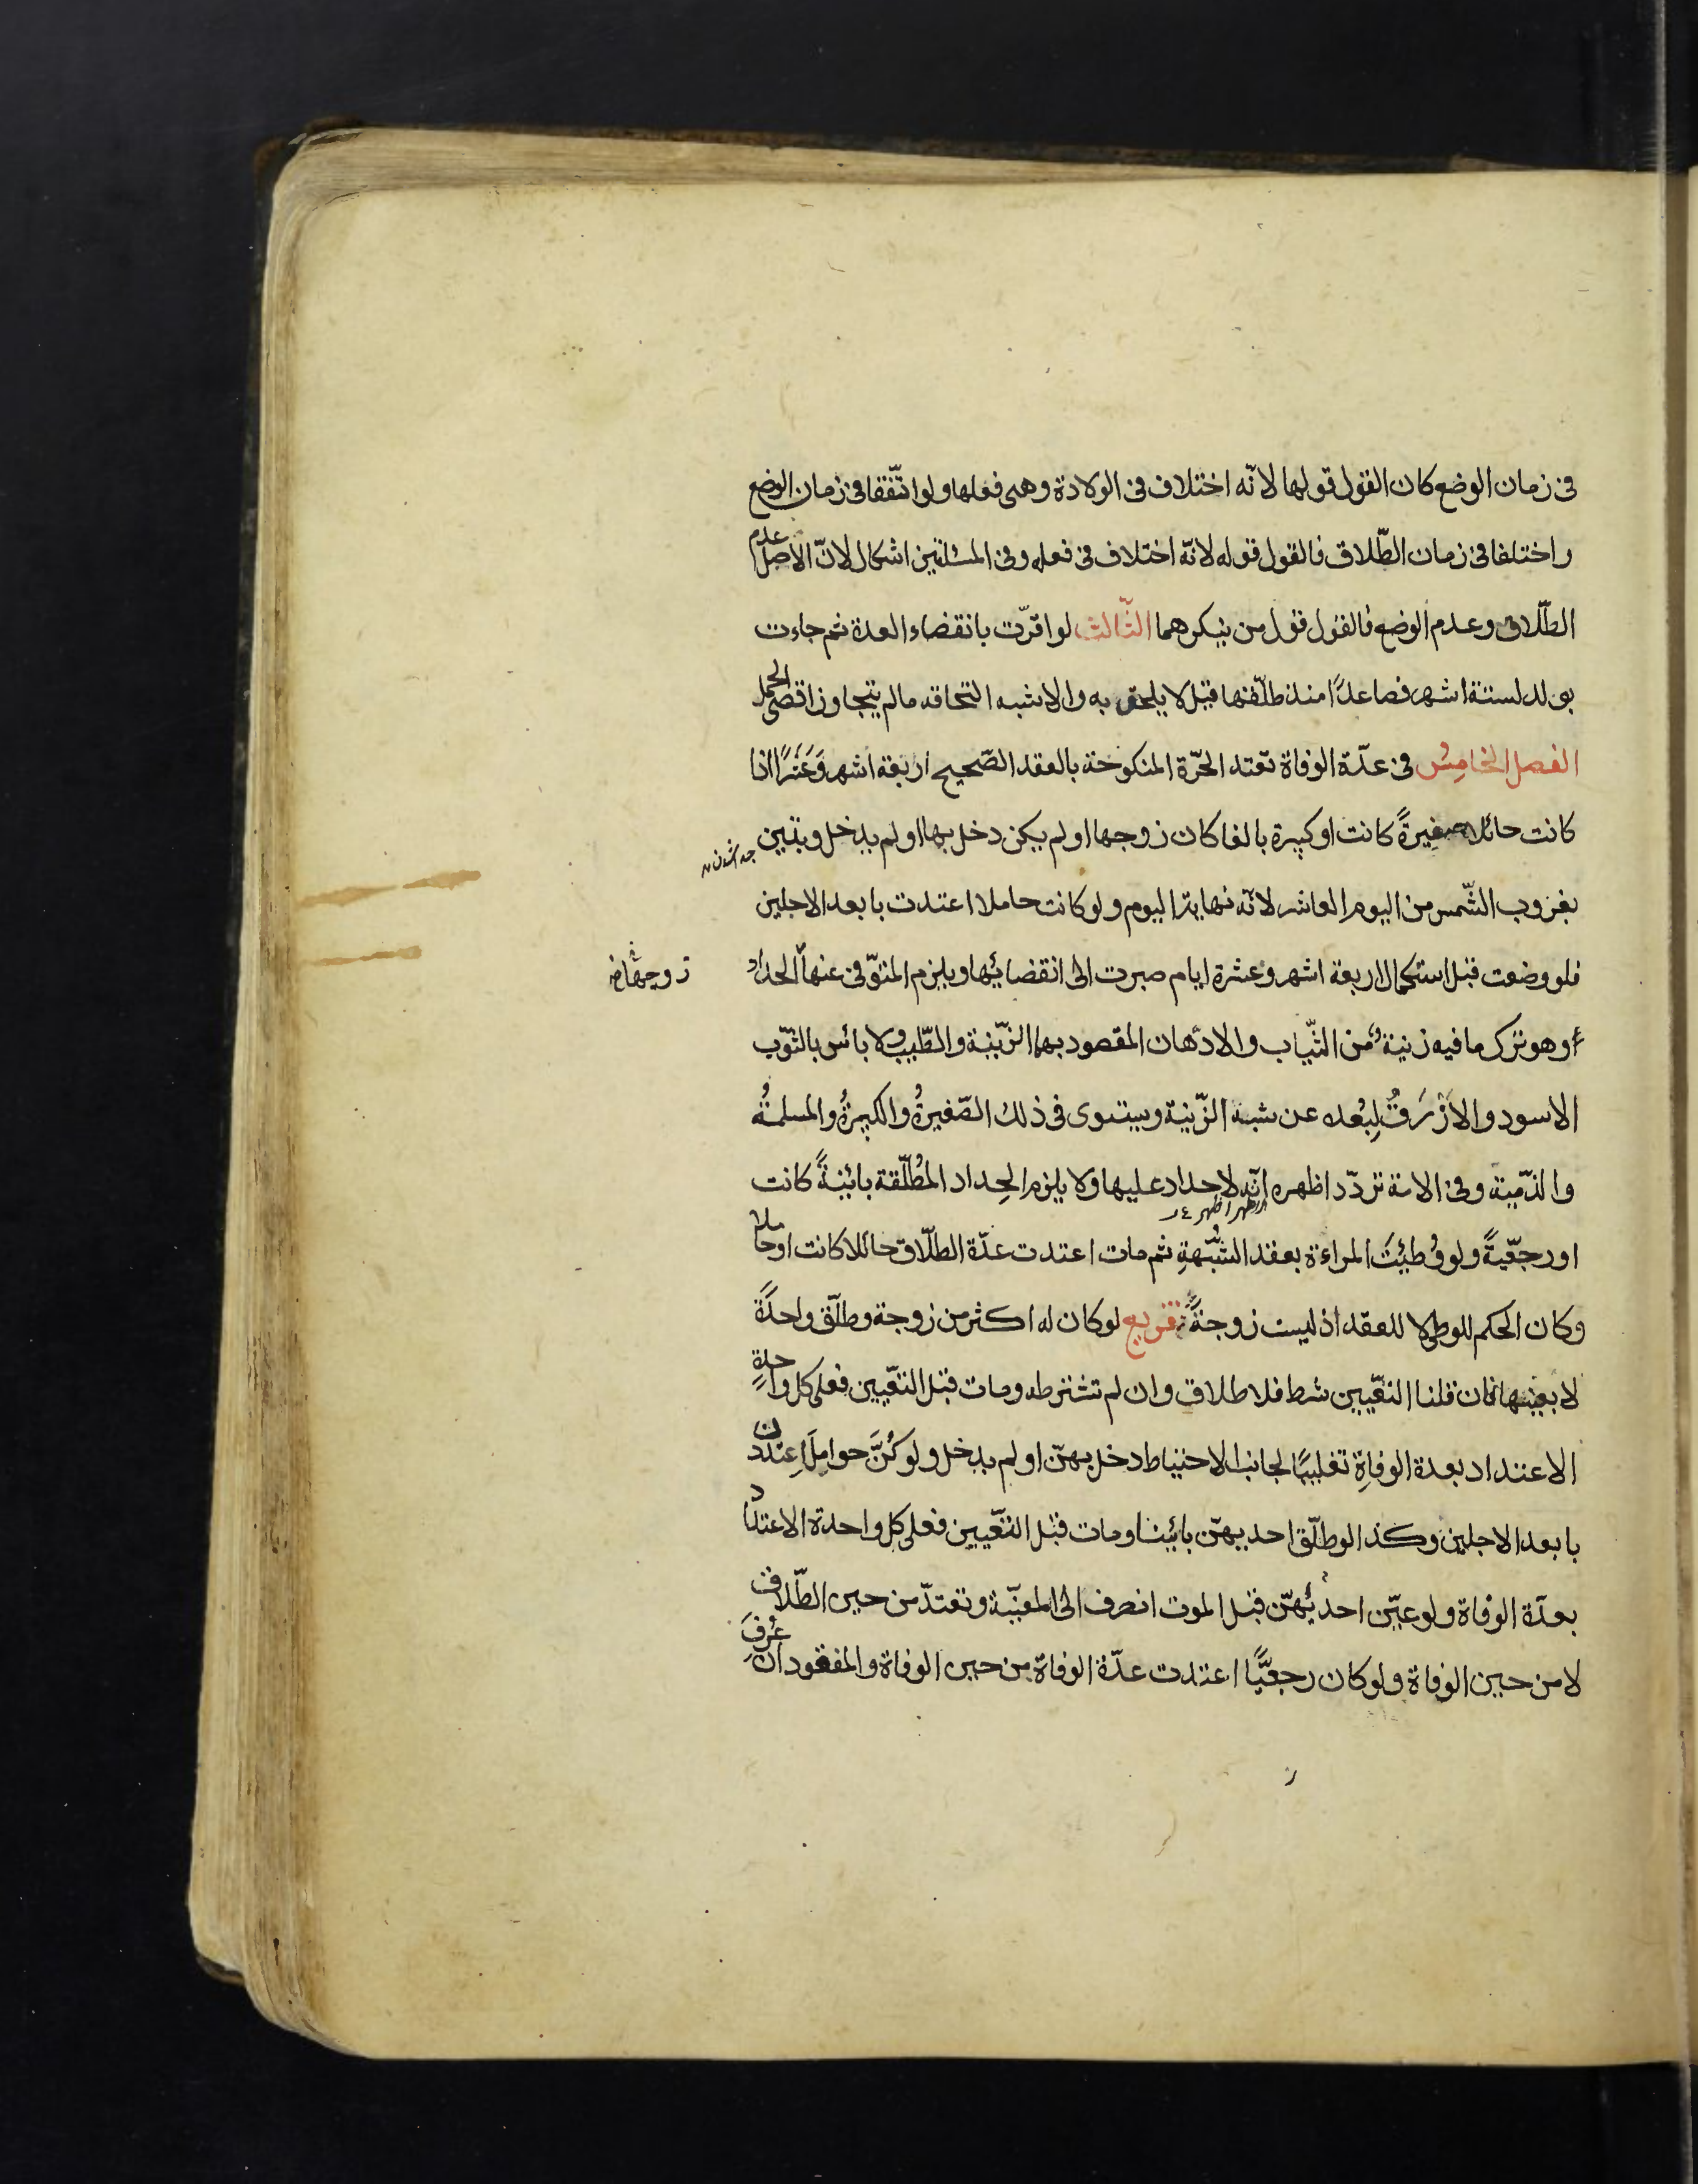 فى زمان الوضع كان القول قولها لانّه اختلاف فى الولادة وهى فعلها ولو اتّفقا فى زمان الوضع
واختلفا فى زمان الطّلاق فالقول قوله لانّه اختلاف فى فعله وفى المسئلتين اشكال لانّ الاصل عدم
الطّلاق وعدم الوضع فالقول قول من ينكرهما الثّالث لو اقرّت بانقضاء العدة ثم جاءت
بولد لستة اشهر فصاعدًا منذ طلّقها قيل لا يلحق به والاشبه التحاقه مالم يتجاوز اقصى الحمل
الفصل الخامس فى عدّة الوفاة تعتد الحرّة المنكوحة بالعقد الصّحيح اربعة اشهر وعَشرًا اذا
كانت حائلا صغيرةً كانت او كبيرة بالغا كان زوجها او لم يكن دخل بها او لم يدخل وتبين
بغروب الشّمس من اليوم العاشر لانّه نهاية اليوم ولو كانت حاملا اعتدت بابعد الاجلين
فلو وضعت قبل استكمال اربعة اشهر وعشرة ايام صبرت الى انقضائها ويلزم المتوّفى عنها الحداد
زوجها خ
وهو ترك ما فيه زينة من الثّياب والادهان المقصود بها الزّينة والطّيب ولا بائس بالثّوب
الاسود والازْرَقُ لِبُعده عن شبه الزّينة ويستوى فى ذلك الصّغيرةُ والكبيرةُ والمسلمةُ
والذّمية وفى الامة تردّد اظهره انّه لا حداد عليها ولا يلزم الحِداد المُطلّقة بائنةً كانت
او رجعّيةً ولو وُطِئَت المراءة بعقد الشّبهةِ ثم مات اعتدت عدّة الطّلاق حائلا كانت او حاملا
وكان الحكم للوطى لا للعقد اذ ليست زوجةً تفريع لو كان له اكثر من زوجة وطلّق واحدَةً
لا بعينها فان قلنا التعّيين شرط فلا طلاق وان لم تشترطه ومات قبل التعّيين فعلى كل واحدةٍ
الاعتداد بعدة الوفاةِ تغليبًا لجانب الاحتياط دخل بهنّ او لم يدخل ولو كُنَّ حوامِلَ اِعتددن
بابعد الاجلين وكذا لو طلّق احديهنّ بائينا ومات قبل التعّيين فعلى كل واحدة الاعتداد
بعدّة الوفاة ولو عيّن احديُهنّ قبل الموت انصرف الى المعيّنة وتعتدّ من حين الطّلاق
لا من حين الوفاة ولو كان رجعيًّا اعتدت عدّة الوفاة من حين الوفاة والمفقود ان عُرِفَ